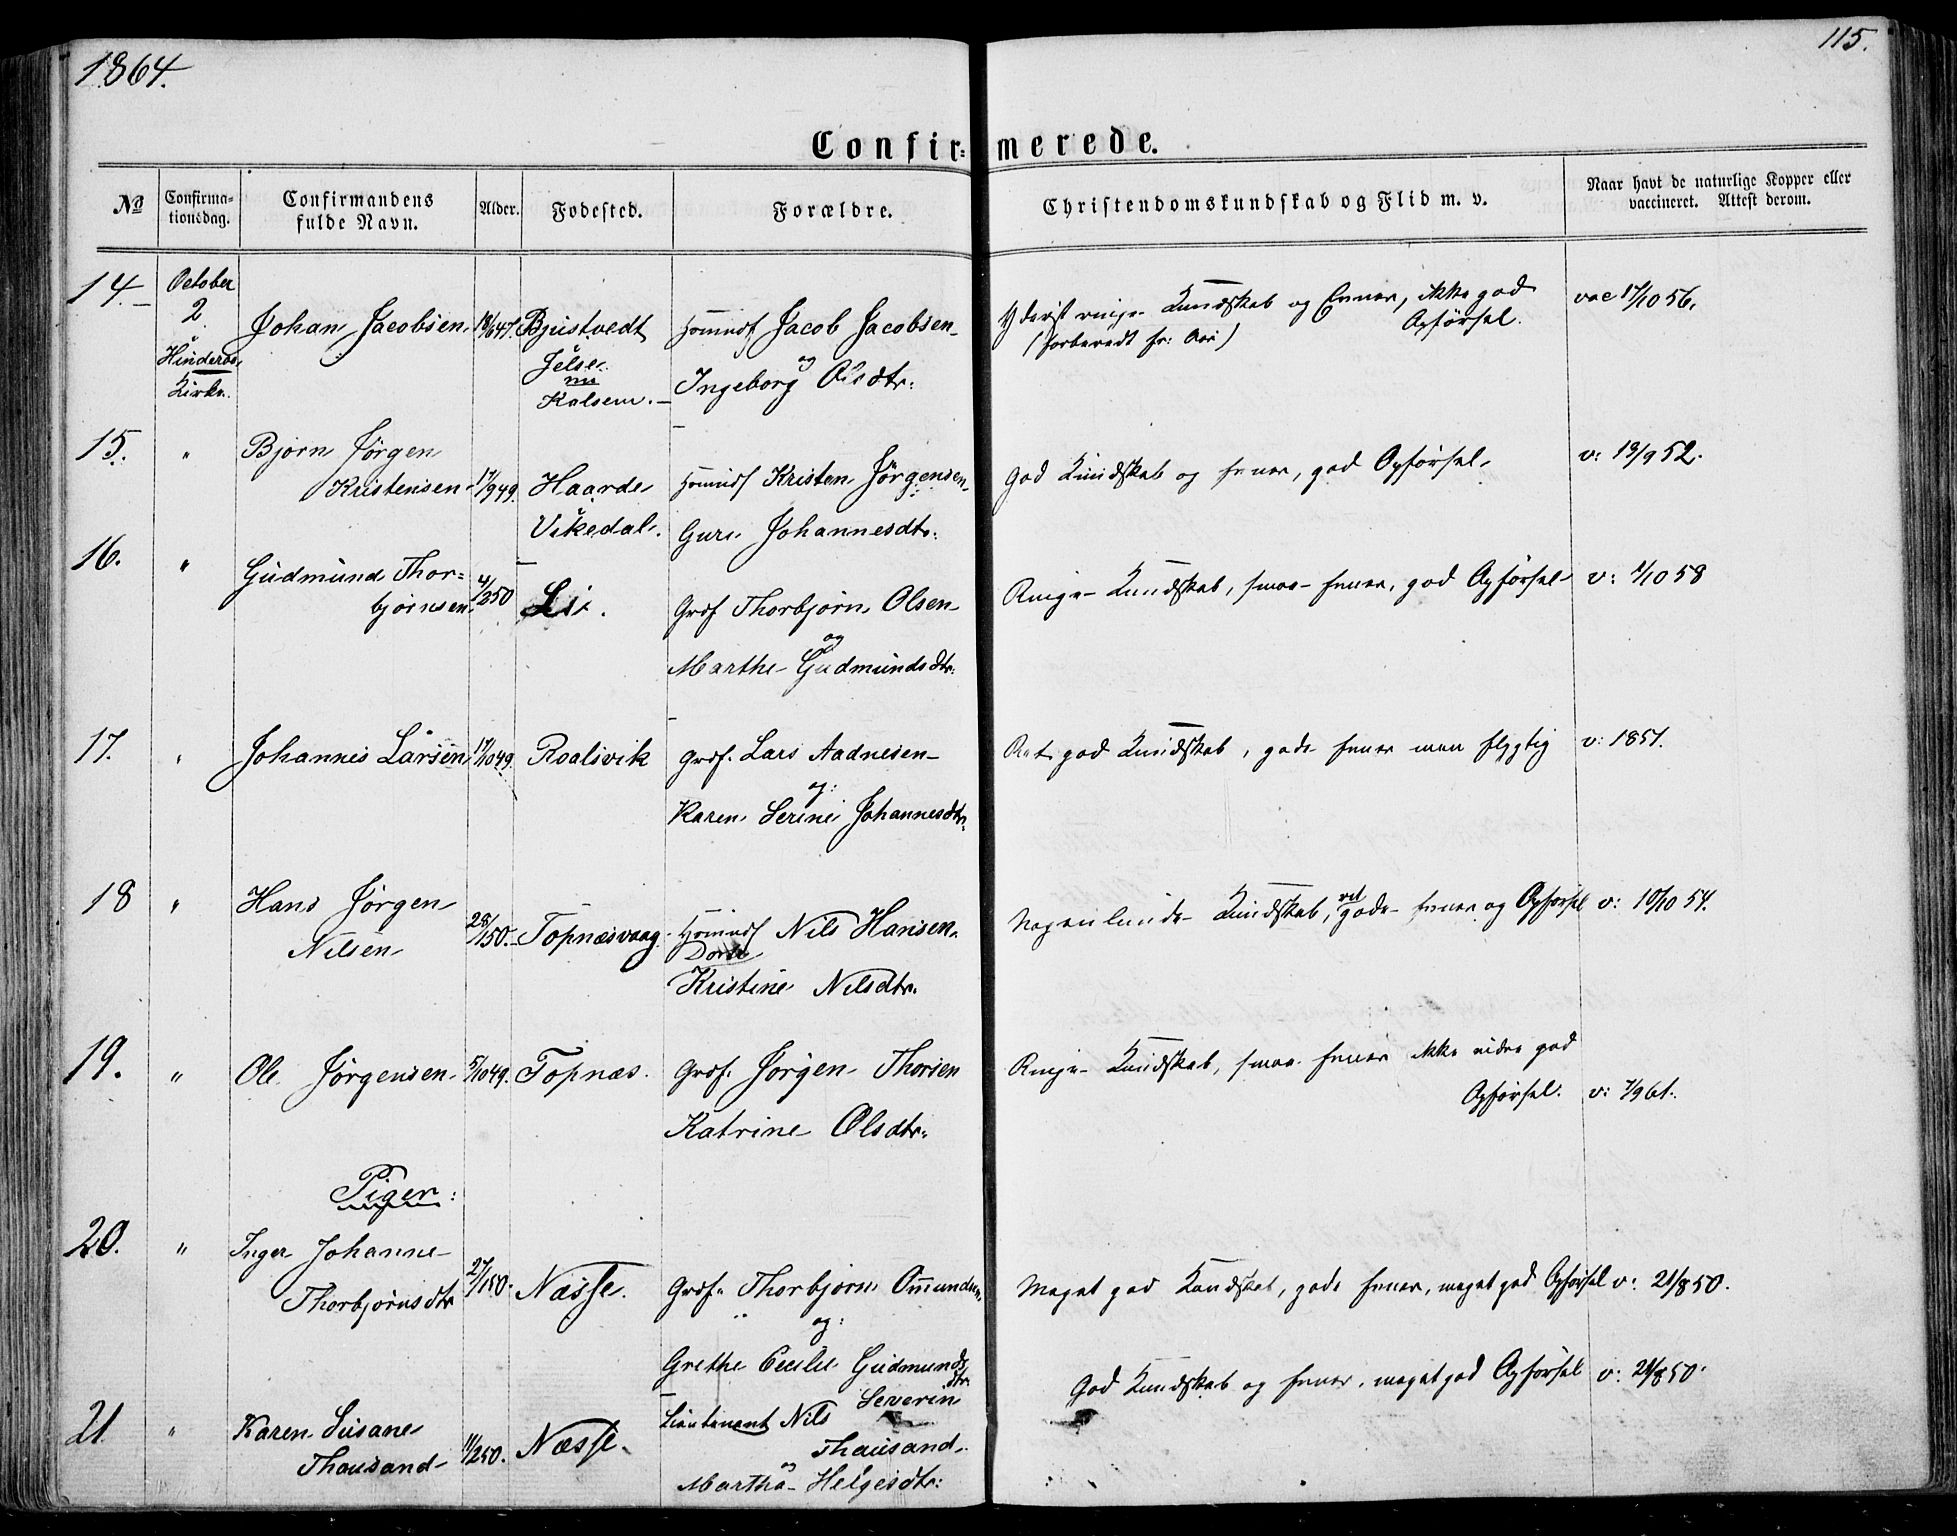 1864.
115.
Confir= merede.
No
Confirma-
tionsdag.
Confirmandens
fulde Navn.
Alder.
Fodested.
Forældre.
Christendomskundskab og Flid m. v.
Naar havt de naturlige Kopper eller
vaccineret. Attest derom.
14.
October
2
Hinderaa
Kirke.
Johan Jacobsen
18/6 47.
Bjustvedt
Jelse
nu
Kalsem.
Huusmd Jacob Jacobsen
og
Ingeborg Olsdtr:
Yderst ringe Kundskab og Evner, ikke god
Opførsel.
(forberedt
vac 17/10 56.
15.
"
Bjorn Jørgen
Kristensen
17/9 49.
Haarde
Vikedal.
Huusmd Kristen Jørgensen
Guri Johannesdtr:
God Kundskab og Evner, god Opførsel.
v: 13/9 52.
16.
"
Gudmund Thor=
bjørnsen
4/2 50
Li.
Grdf Thorbjørn Olsen
og
Marthe Gudmundsdtr:
Ringe Kundskab, smaa Evner, god Opførsel
v: /10 58
17.
"
Johannes Larsen
17/10 49.
Roalsvik
Grdf. Lars Aadnesen
og:
Karen Serine Johannesdtr.
Ret god Kundskab, gode Evner men flygtig
v: 1851.
18
"
Hans Jørgen
Nilsen
28/1 50.
Topnæsvaag
Huusmd Nils Hansen
Dorte
Kristine Nilsdtr.
Nogenlunde Kundskab, ret gode Evner og Opførsel
v: 10/10 54.
19.
"
Ole Jørgensen
5/10 49.
Topnæs.
Grdf. Jørgen Thorsen
Katrine Olsdtr:
Ringe Kundskab, smaa Evner ikke videre god
Opførsel.
v: 7/9 61.
Piger:
20.
"
Inger Johanne
Thorbjørnsdtr
27/1 50.
Næsse.
Grdf. Thorbjørn Omundsen
og:
Grethe Cecilie Gudmunds
dtr.
Meget god Kundskab, gode Evner, meget god Opførsel
v: 21/8 50.
21.
"
Karen Susane
Thausand
11/2 50.
Næsse.
Lieutenant Nils Severin
Thausand
og
Martha Helgesdtr:
God Kundskab og Evner, meget god Opførsel
v: 21/8 50.